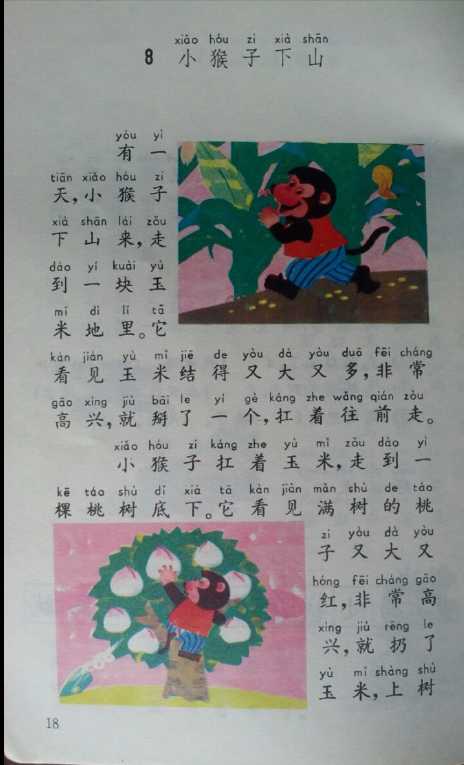 xiǎo hóu zi xià shān
8 小猴子下山
yóu yì
有一
tiān xiǎo hóu zi
天,小猴子
xià shān lái zǒu
下山来,走
dào yí kuài yù
到一块玉
mǐ dì lǐ tā
米地里。它
kàn jiàn yù mǐ jiē de yòu dà yòu duō fēi cháng
看见玉米结得又大又多,非常
gāo xìng jiù bāi le yí gè káng zhe wǎng qián zǒu
高兴,就掰了一个,扛着往前走。
xiǎo hóu zi káng zhe yù mǐ zǒu dào yì
小猴子扛着玉米,走到一
kē táo shù dǐ xià tā kàn jiàn mǎn shù de táo
棵桃树底下。它看见满树的桃
zi yòu dà yòu
子又大又
hóng fēi cháng gāo
红,非常高
xìng jiù rēng le
兴,就扔了
yù mǐ shàng shù
玉米,上树
18